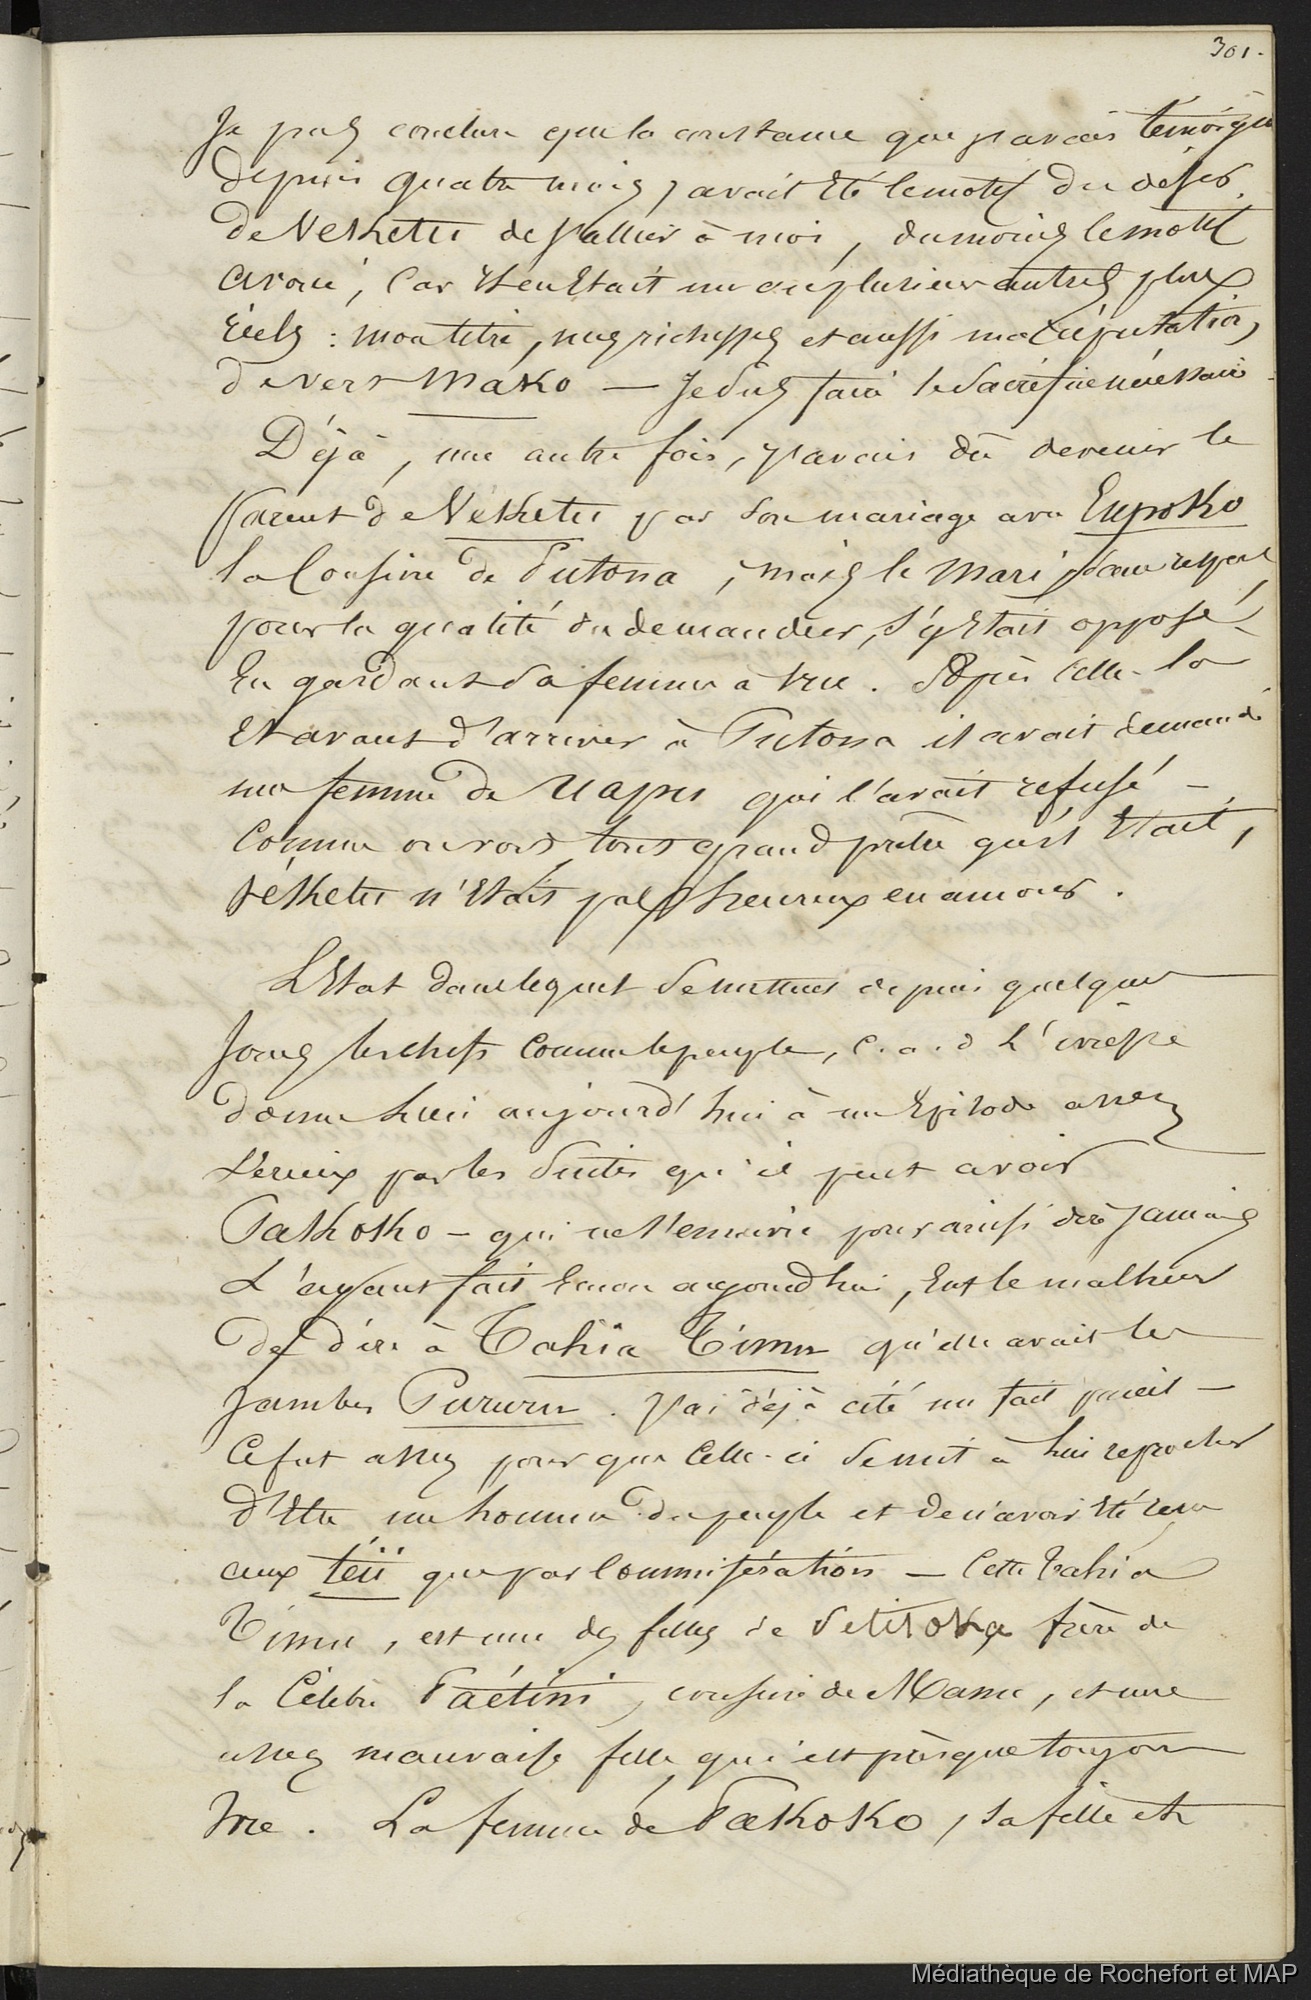 301.
Je puis conclure que la constance que j'avais témoigné
depuis quatre mois, avait été le motif du désir
de Vékétu de s'allier à moi, du moins le motif
avoué, car il en était un ou plusieurs autres plus
réels : mon titre, mes richesses et aussi ma réputation
devers Mako — Je dus faire le sacrifice nécessaire
Déjà, une autre fois, j'avais dû devenir le
parent de Vékétu par son mariage avec Eupoko
la cousine de Putona, mais le mari sans respect
pour la qualité du demandeur, s'y était opposé
en gardant sa femme à vue. Après celle-là
et avant d'arriver à Putona il avait demandé
ma femme de Uapu qui l'avait refusé —
Comme on voit, tout grand prêtre qu'il était,
Vékétu n'était pas heureux en amour.
L'état dans lequel se mettent depuis quelques
jours les chefs comme le peuple, c. a. d l'ivresse
donne lieu aujourd'hui à un épisode assez
sérieux par les suites qu'il peut avoir
Pakoko – qui ne s'enivre pour ainsi dire jamais
l'ayant fait encore aujourd'hui, eut le malheur
de dire à Tahia Timu qu'elle avait les
jambes Pururu. J'ai déjà cité un fait pareil —
Ce fut assez pour que celle-ci se mit à lui reprocher
d'être un homme du peuple et de n'avoir été reçu
aux téii que par commisération — Cette Tahia
Timu, est une des filles de Vetitoka frère de
la célèbre Paétini, cousine de Mame, et une
assez mauvaise fille qui est presque toujours
ivre. La femme de Pakoko, sa fille et
Médiathèque de Rochefort et MAP